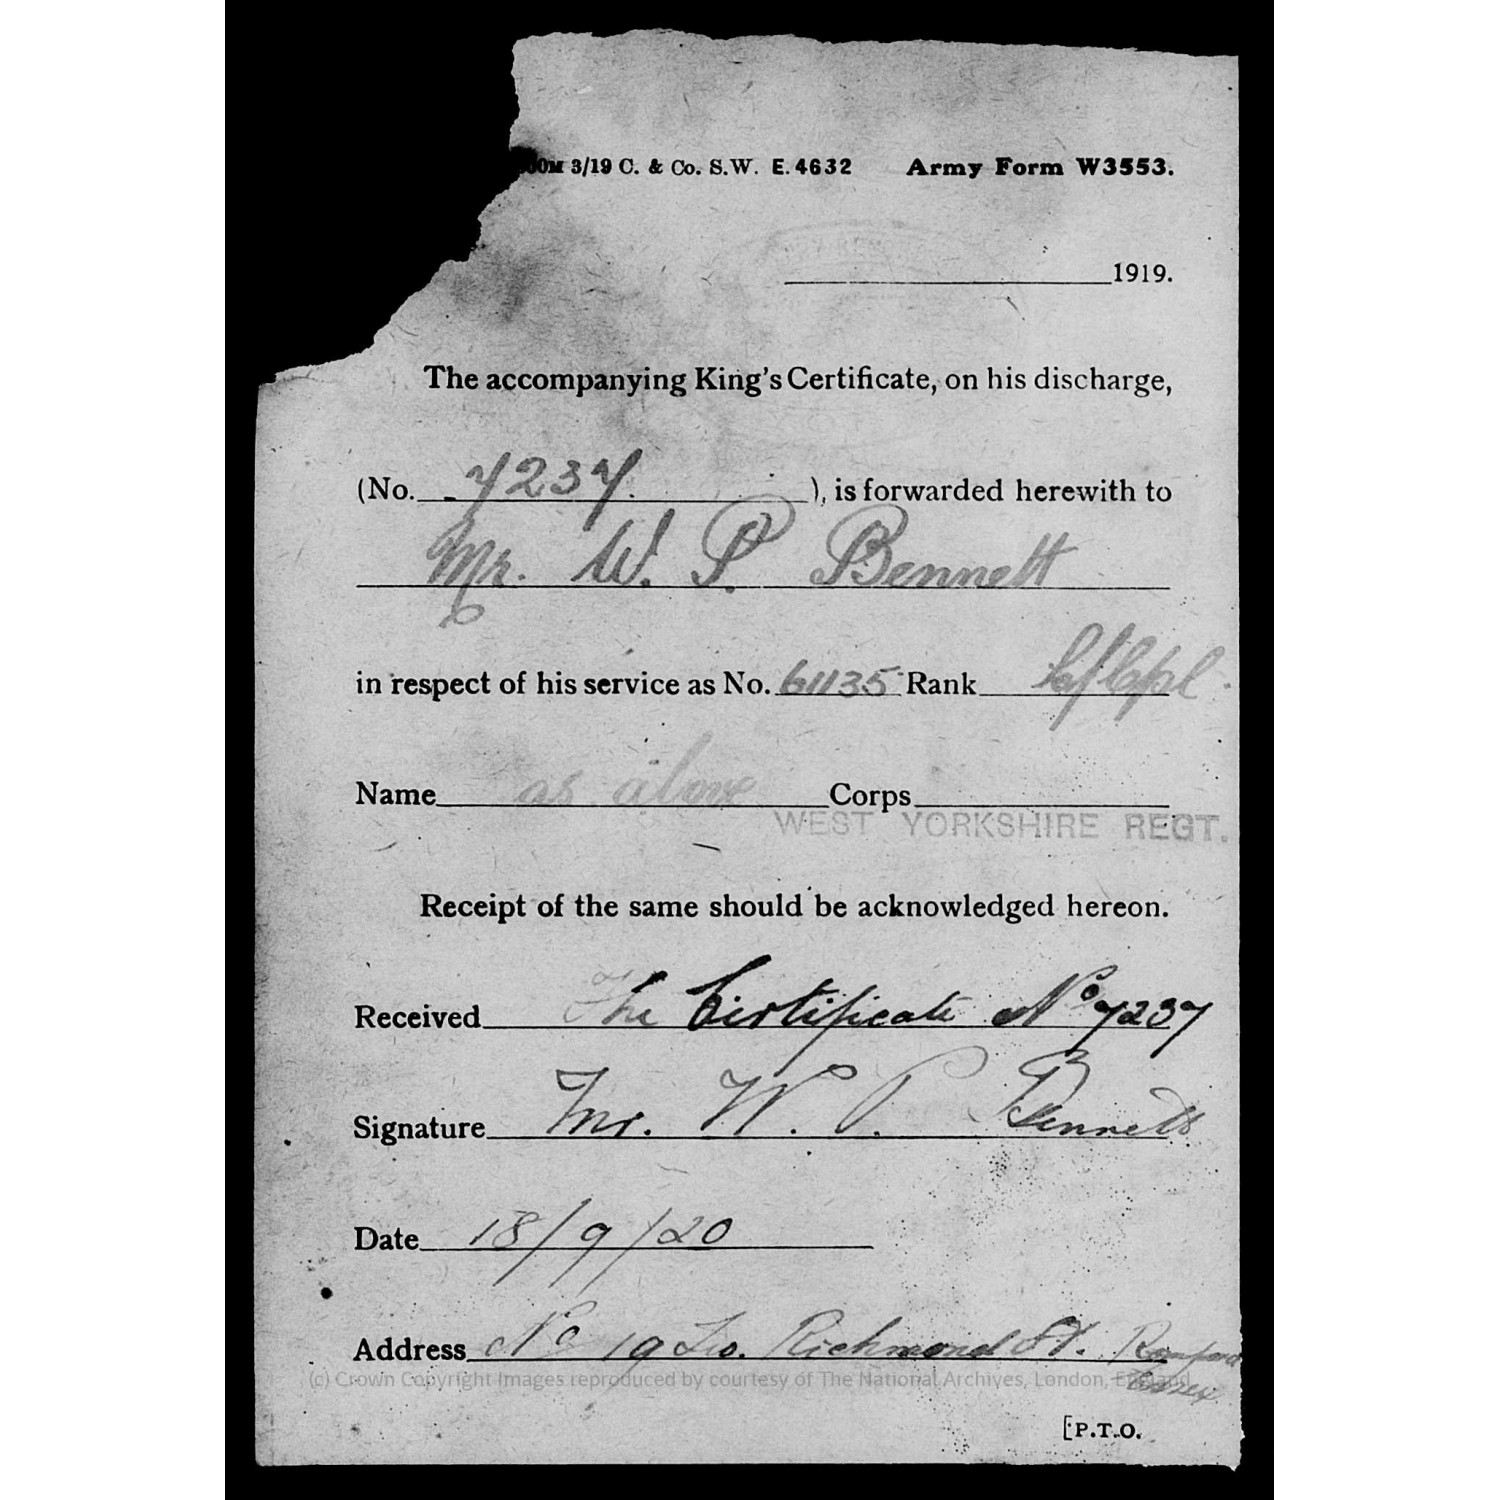 00M 3/19 C. & Co. S.W. E. 4632 Army Form W3553.
1919.
The accompanying King's Certificate, on his discharge,
(No. 7237. ), is forwarded herewith to
Mr. W. P. Bennett
in respect of his service as No. 61135 Rank
Name as above Corps
WEST YORKSHIRE REGT.
Receipt of the same should be acknowledged hereon.
Received The Certificate No 7237
Signature Mr. W. P. Bennett
Date 18/9/20
Address No 19 Richmond St.
(c) Crown Copyright Images reproduced by courtesy of The National Archives, London, England
Essex
[P.T.O.